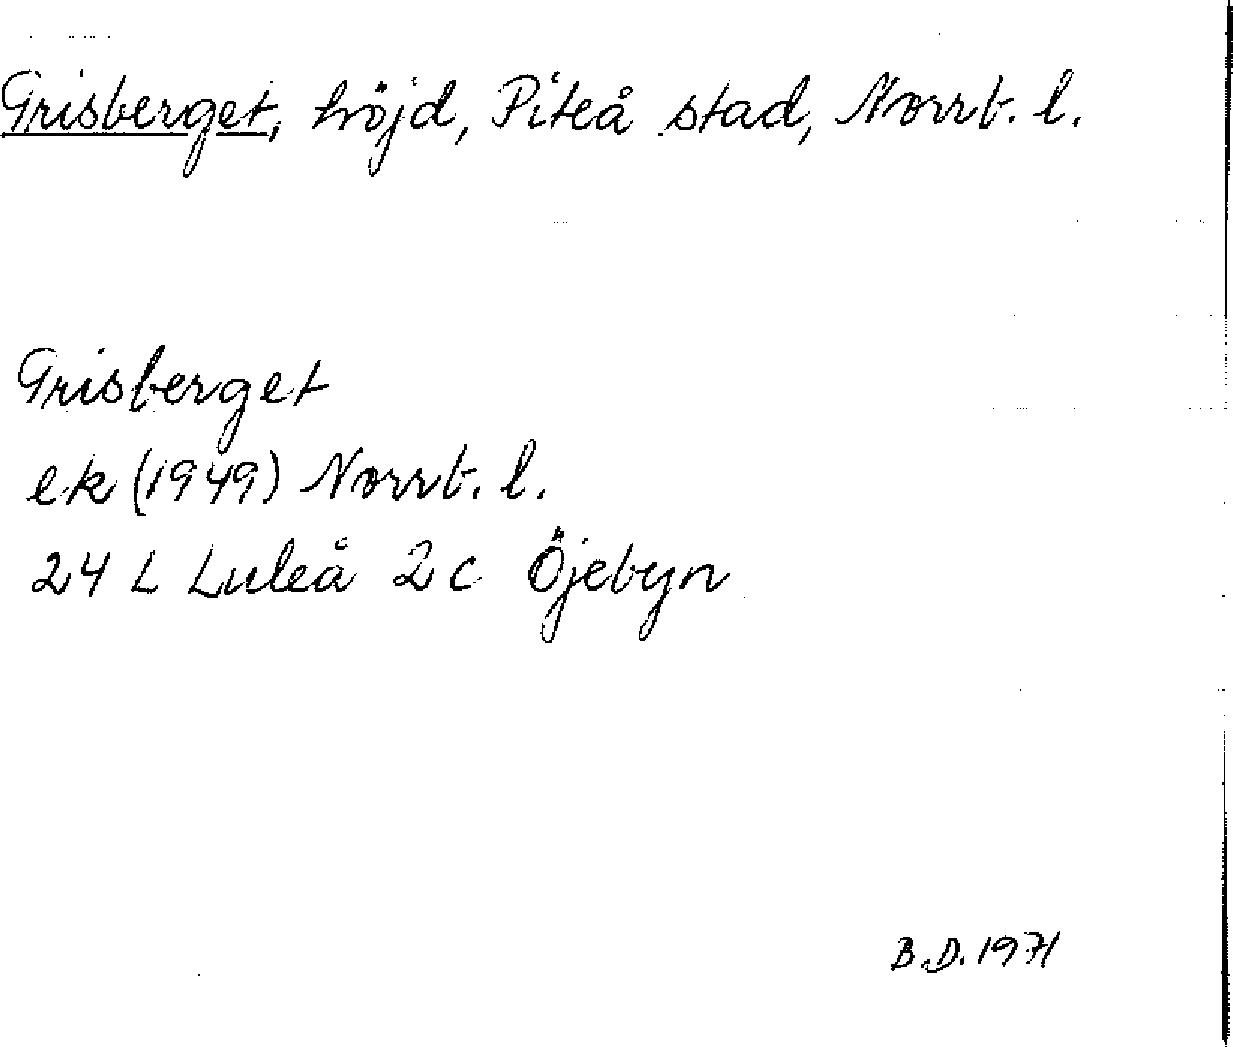 Grisberget, höjd, Piteå stad, Norrb. l.
Grisberget
ek (1949) Norrb. l.
24 L Luleå 2 c Öjebyn
B.D. 1971